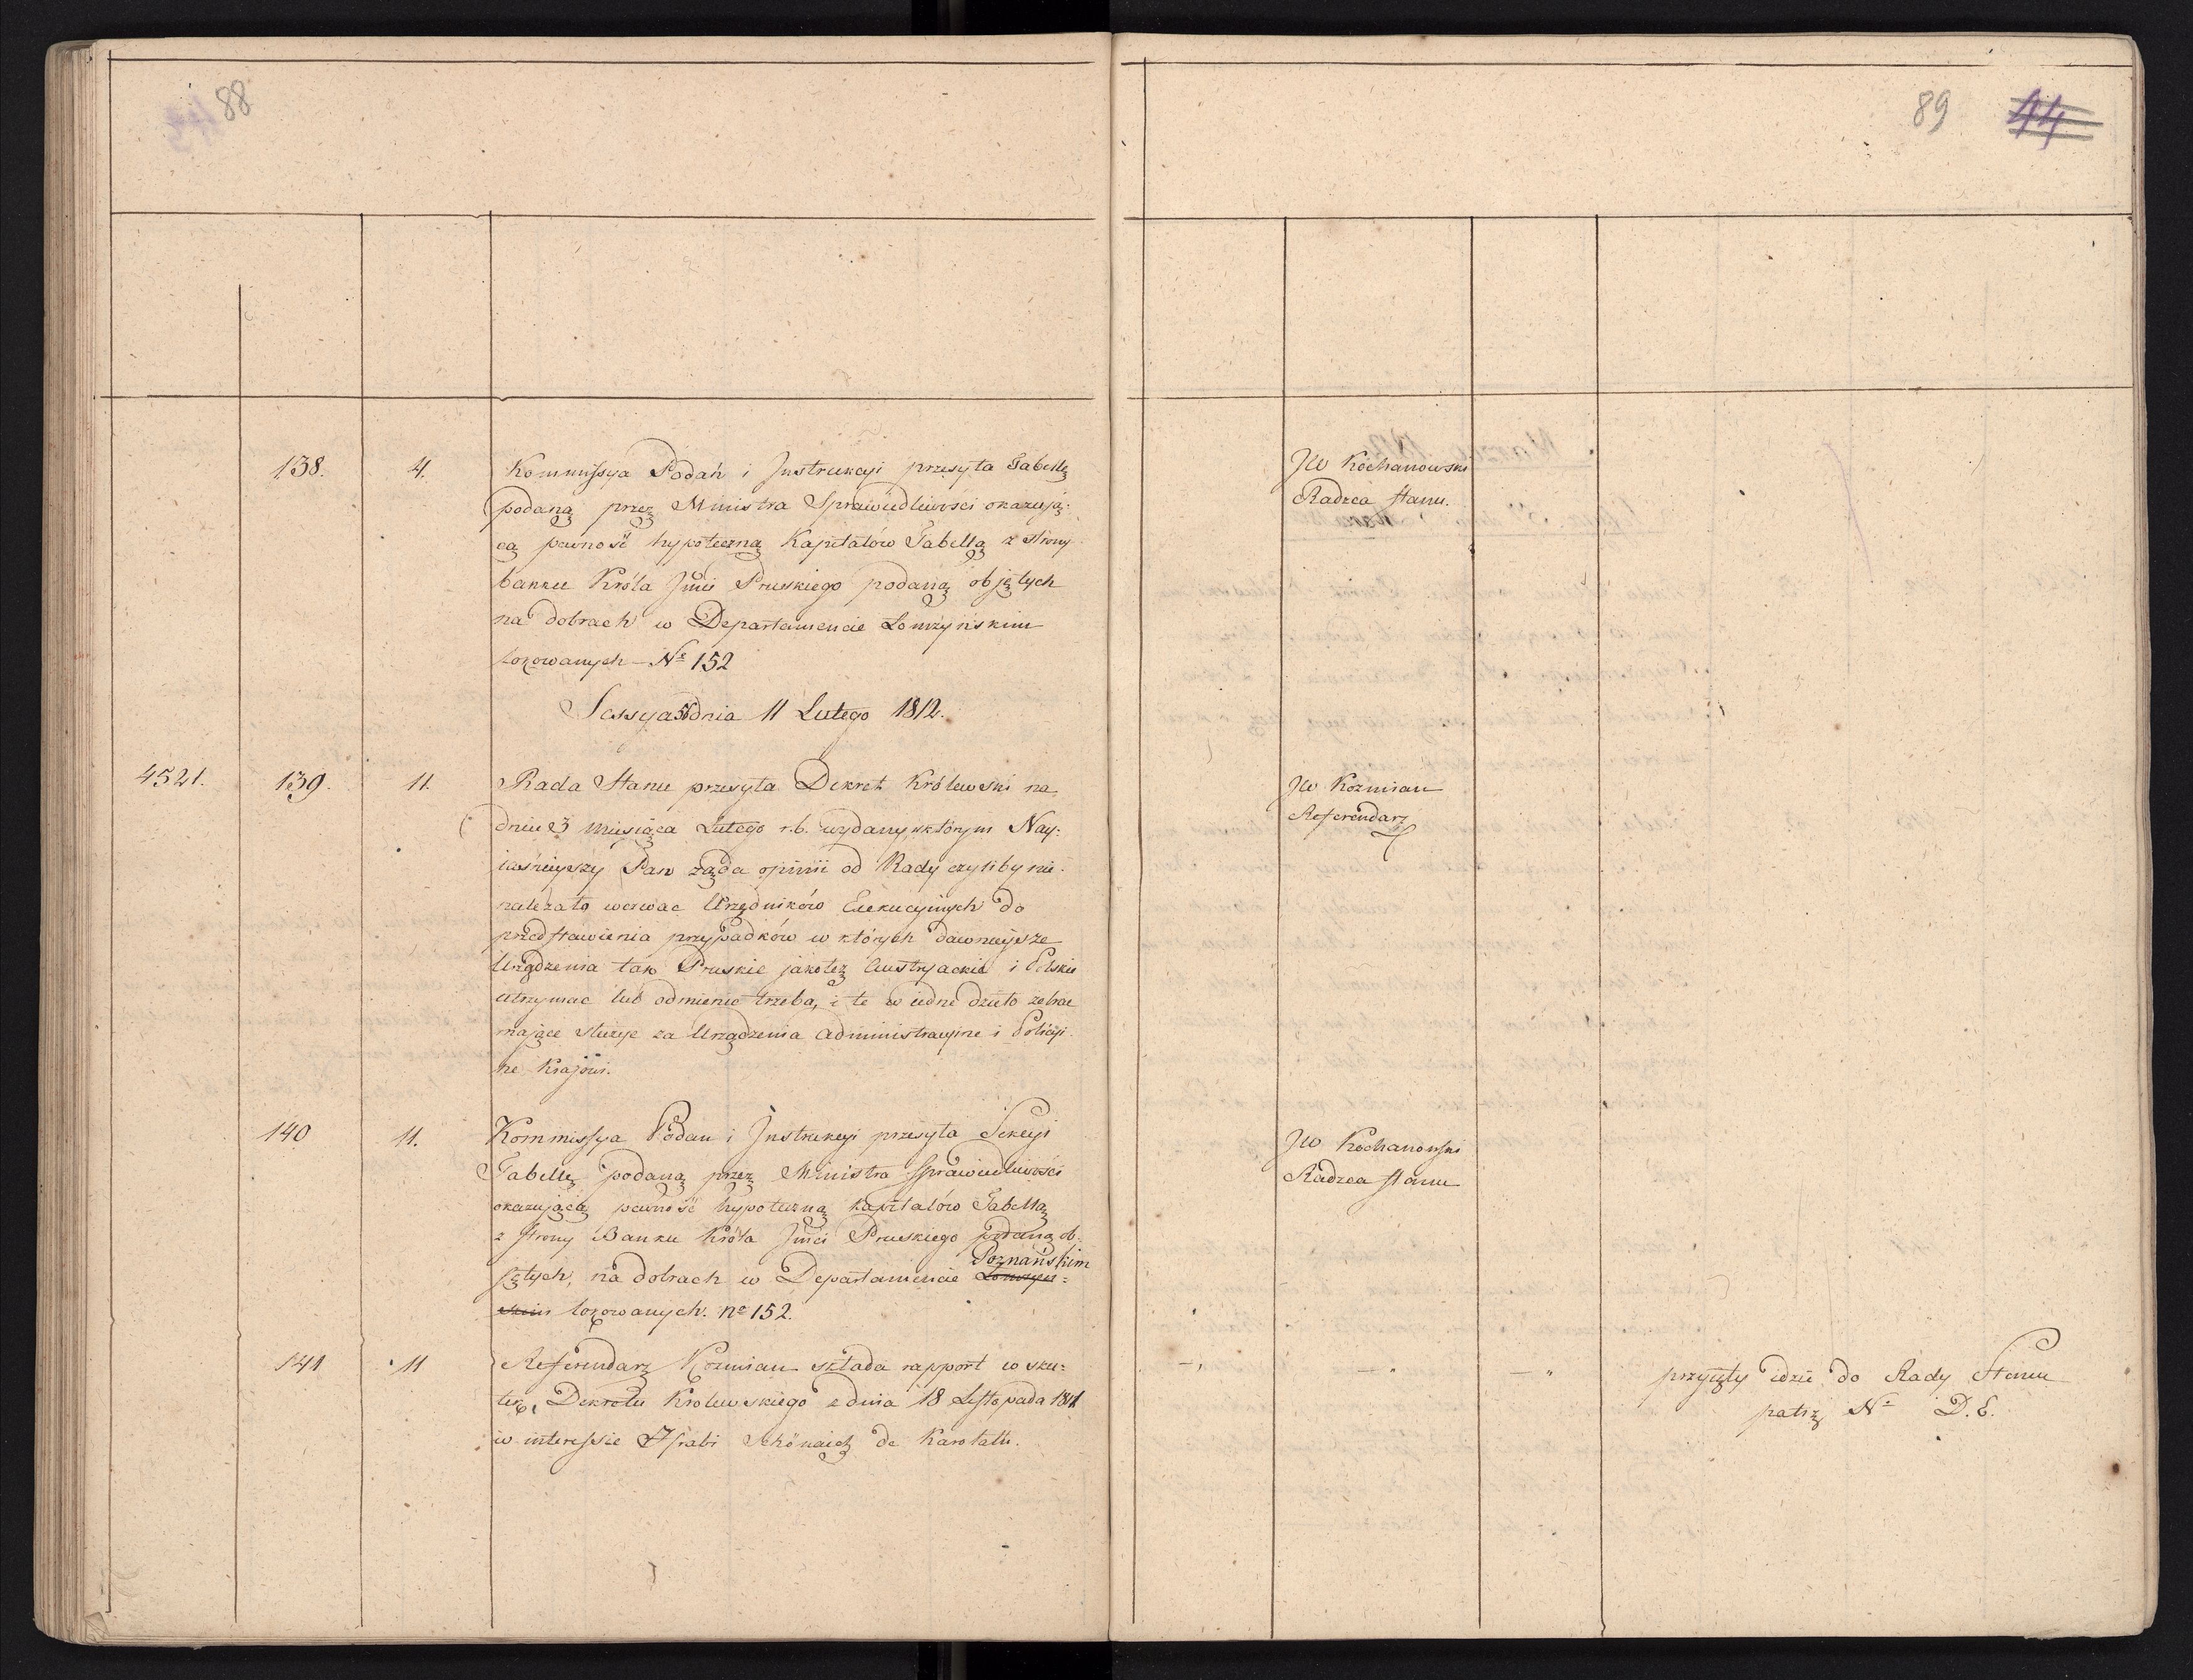 88
138. 4. Kommissya Podań i Instrukcyi przesyła Tabellę
podaną przez Ministra Sprawiedliwosci okazują-
cą pewność hypoteczną Kapitałów Tabellą z strony
banku Króla Jmci Pruskiego podaną objętych
na dobrach w Departamencie Łomżyńskim
lokowanych – Nº 152
Sessya dnia 11 Lutego 1812.
4521. 139. 11. Rada Stanu przesyła Dekret Królewski na
dniu 3 Miesiąca Lutego r.b. wydany, w którym Nay:
iaśnieyszy Pan żąda opinii od Rady czyliby nie
należało wezwac Urzędników Exekucyinych do
przedstawienia przypadków w których dawnieysze
Urządzenia tak Pruskie jakoteż Austryackie i Polskie
utrzymac lub odmienic trzeba, i te w iedne dzieło zebrac
mające służyc za Urządzenia administracyine i Policyi
ne Krajowi.
140 11. Kommissya Podan i Instrukcyi przesyła Sekcyi
Tabellę podaną przez Ministra Sprawiedliwości
okazującą pewność hypoteczną kapitałów Tabellą
z strony Banku Króla Jmci Pruskiego podaną ob-
jętych, na dobrach w Departamencie Łomżyń=
Poznańskim
skim lokowanych. nº 152.
141 11 Referendarz Kozmian składa rapport w sku:
tek Dekretu Krolewskiego z dnia 18 Listopada 1811
w interessie Hrabi Schönaich de Karolath.
89 44
JW Kochanowski
Radzca stanu.
JW Kozmian
Referendarz
JW Kochanowski
Radzca stanu
przyięty idzie do Rady Stanu
patrz Nº D.E.